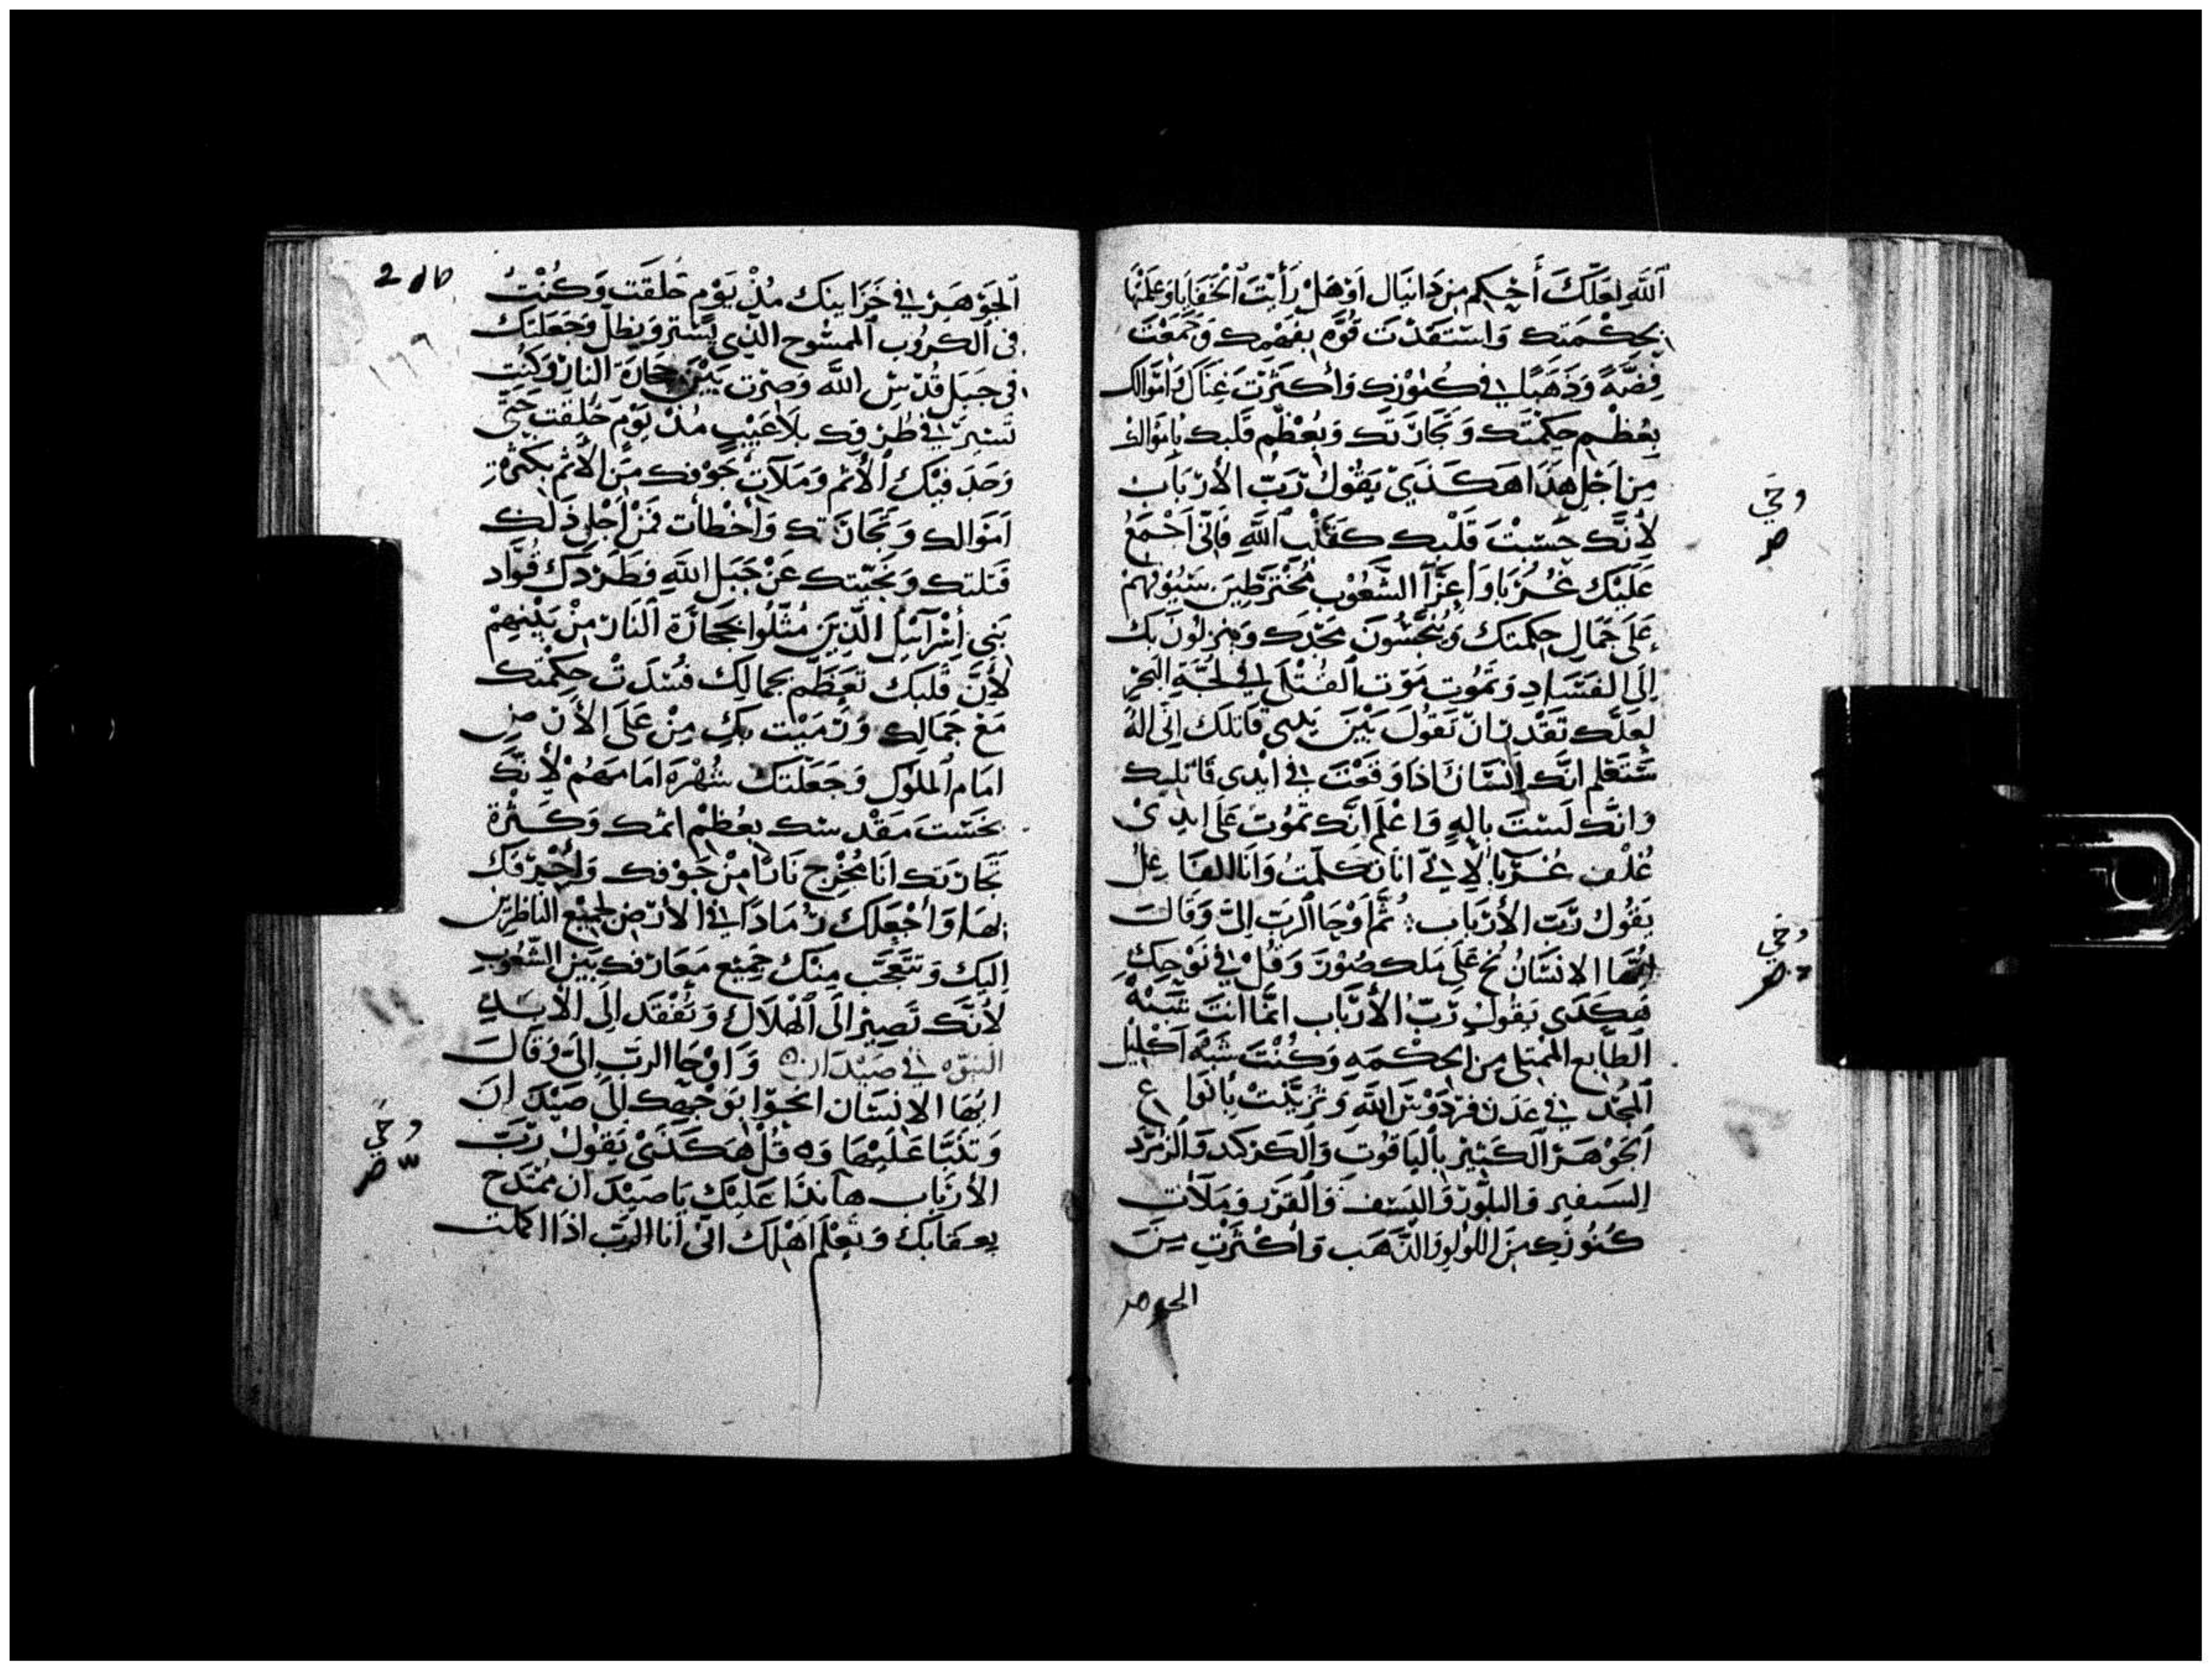 ٱللَّهِ لعَلّكَ أَحْكم مِن دَانيَال اوْ هَلْ رَأَيْتَ ٱلْخَفَايَا وَعَلمْتَهَا
بحكْمَتك وَاسْتفَدْتَ قُوَّه بفهْمِك وَجمَعْتَ
فِضَّةً وَذَهَبًا في كنُوْزك وَأكثَرْتَ غِنَاكَ وَامْوَالك
بعُظْم حِكمْتَك وَتجَارَتك وَتعْظّم قَلبك بامْوَالك
مِن اجْل هَذَا هَكَذَيْ يَقُوْل رَبّ الأرْبَاب
لأنّك حَسبْتَ قَلْبك كقَلْب ٱللَّهِ فَانّي اجْمَعُ
عَلَيْك غُرَبَا وَاعِزّآ الشّعُوْب مُخْترَطِين سُيُوْفهمْ
عَلَى جَمَال حِكمَتك وَينَجّسُونَ مَجْدَك وَينزلوُن بك
إلَى الفسَاد وَتمُوت مَوْت ٱلقتْلَى في لجّةِ البَحْر
لعَلّك تقْدر ان تقولَ بَيْنَ يدى قاتلك انّي الهُ
سَتعْلم انّك انْسَان اذا وَقعْتَ في ايْدى قاتليك
وَانّك لسْتَ بالهٍ وَاعْلم انّك تمُوت عَلى ايدي
غُلْف غُرَبَا لاني انَا تكلّمتُ وَانَا الفاعِل
يَقُول رَبّ الأرْبَاب ثمَّ اوْحَا ٱلرَبّ الىّ وَقَالَ
ايُّهَا الانسَانُ نُحْ عَلَى مَلك صُوْرَ وَقُلْ في نَوْحِكَ
هَكَذَى يَقُول رَبّ الأرْبَاب انّمَا انتَ شبهْ
ٱلطابع الممتلي من الحكْمَه وَكُنْتَ شبْه اكليْل
ٱلمجْد في عَدَن فرْدَوْسَ ٱللَّه وَتزيّنْتَ بانوَاع
ٱلجَوْهَر الكَثيْر بالياقوُت وَالكركند وَالزمرّد
السفير وَالبلّور وَاليَسف وَالقرْد وَملأت
كنُوُزك من اللولو وَالذَّهَب وَاكْثرْت مِنَ
الجوهر
وحي
صر
وحي
صر
2
الجَوْهَرْ في خَزَاينك مُذْ يَوْم خُلقت وَكُنْت
في ٱلكرُوْب ٱلممْسُوح الذّي يَسْتر وَيظلّ وَجَعَلتك
في جبَل قُدْسْ اللَّه وَصرْت بَيْن حجَارَة النارْ وَكُنْت
تسيْر في طرقك بلاَ عَيْبٍ مُذْ يَوْم خُلقت حتّى
وَجَد فيْك الأثم وَمَلآت جَوْفك مِنَ الأثم بكثْرة
امَوْالك وَتجَارَتك وَاخْطأت فمَنْ اجْل ذَلك
قتلتك وَنجّيتك عَنْ جبَل اللَّهِ فطَرْدَك قُوّاد
بَنِي أسْرآئيل الّذِيَن مُثّلوا بحجَارَة النَار مِنْ بَيْنهمْ
لأنَّ قلبَك تعَظّم بجمالِك فسَدَتْ حِكمْتك
مَعَ جَمَالك وَرَميْت بك مِنْ عَلَى الأرْض
امَام ٱلملوُك وَجَعَلتَك شهْرَه امَامهمُ لأنّك
نجسْت مَقْدسك بعُظم اثمك وَكَثْرة
تجَارَتك انَا مُخْرج نَارًا مِنْ جَوْفك وَأحْرقك
بهَا وَأجْعَلك رَمَادًا في الأرْض لجميْع الناظريْن
اليك وَتتعَجّب منْك جَميْع مَعَارفك بَيْن الشّعُوب
لأنَّك تَصيْر الَى الْهلاك وَتُفْقد الَى الأبَد
النبوّه في صيْدَان وَاوْحَا الربّ الىّ وَقَالَ
ايُهَا الانسَان انحُوا بوَجْهك الَى صَيْدَ انَ
وَتنبّا عَليْهَا وَقُلْ هَكَذَىْ يَقُولْ رَبّ
الأرْبَاب هَا نذَا عَليْك يَا صَيْدَ ان ممْتدح
بعقابك وَتعْلم اهْلك انّي انَا الربّ اذا اكملت
وحي
صر